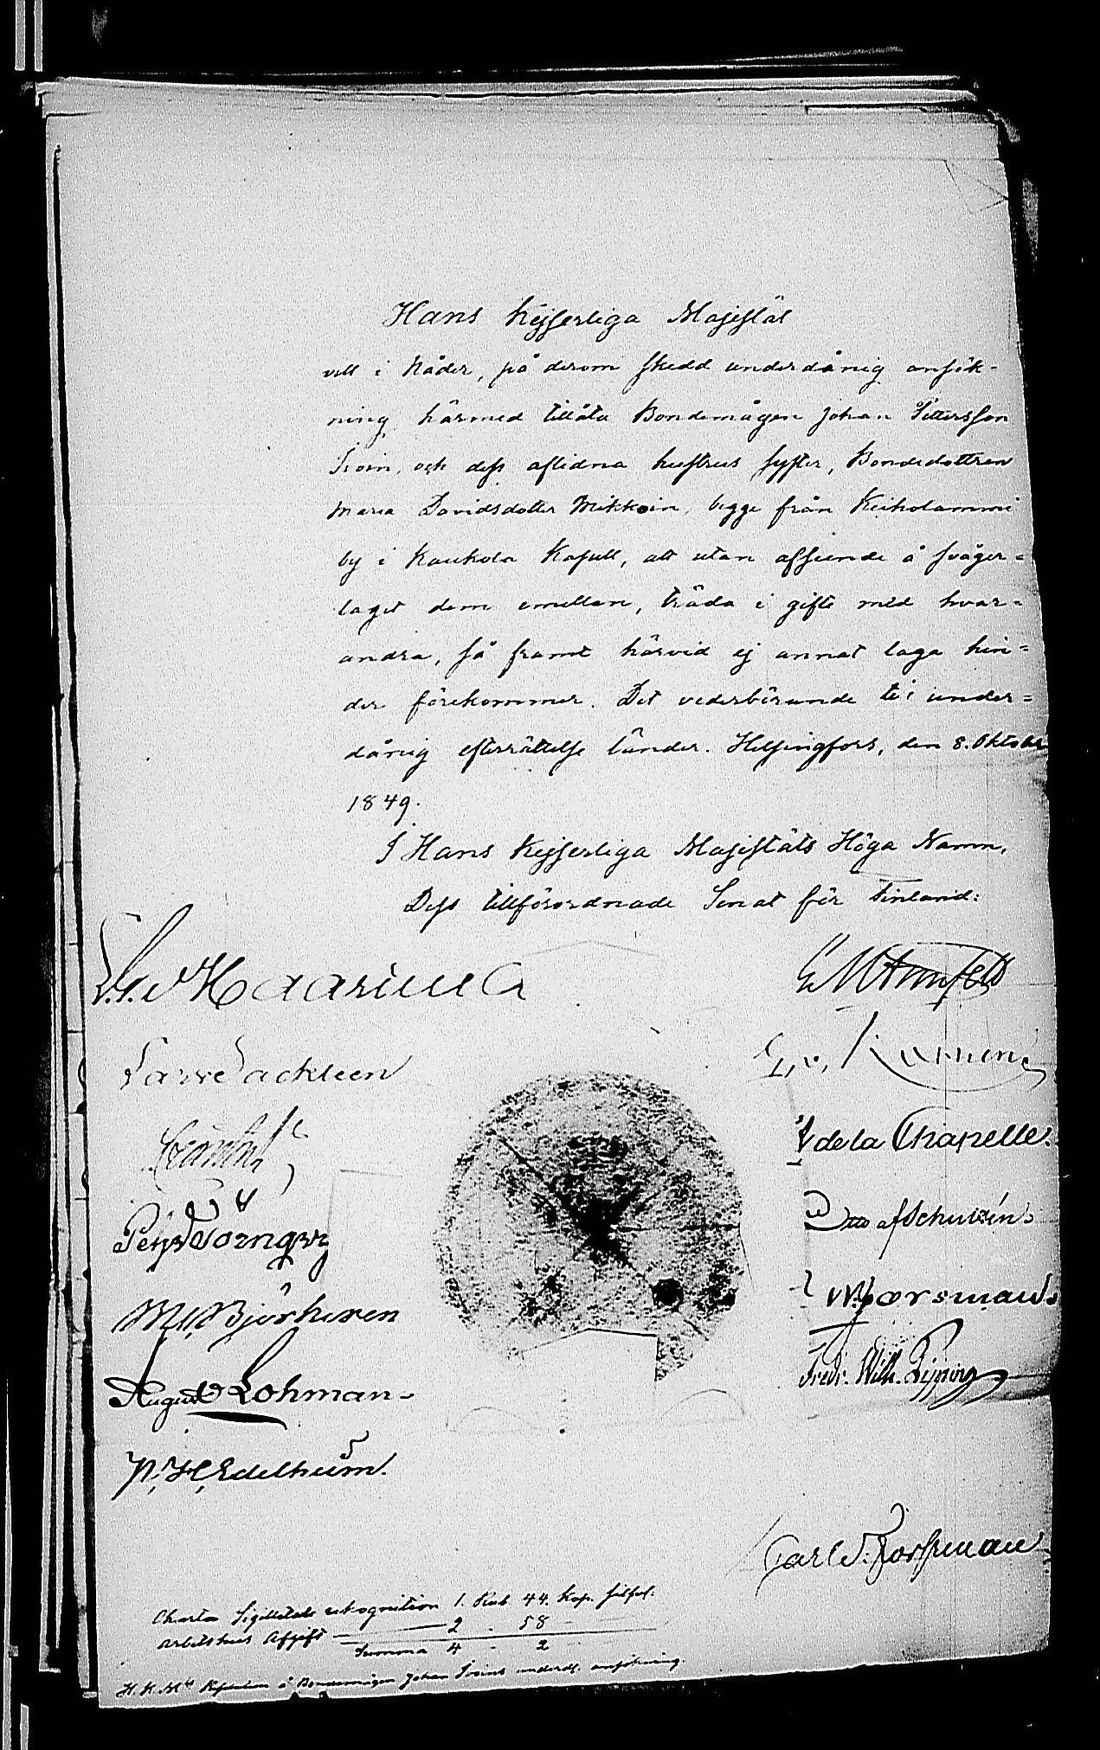 Hans Kejserliga Majestät
vill i Nåder, på derom skedd underdånig ansök-
ning, härmed tillåta Bondemågen Johan Pettersson
Iivoin, och dess aflidna hustrus syster, Bondedottren
Maria Davidsdotter Mikkoin, begge från Keiholammi
by i Kaukola Kapell, att utan afseende å svåger-
laget dem emellan, träda i gifte med hvar-
andra, så framt härvid ej annat laga hin-
der förekommer. Det vederbörande til under-
dånig efterrättelse länder. Helsingfors, den 8. Oktober
1849.
I Hans Kejserliga Majestäts Höga Namn,
Dess tillförordnade Senat för Finland:
Haartman
G M Armfelt
Lars Sackleen
de la Chapelle
Törnqvist
Otto af Schultén
Björksten
Norsman
August Lohman
Fredr. Wilh. Pipping
P. H. Edelheim
Carl Forsman
Charta Sigillatæ rekognition 1. Rub 44. Kop. silfv.
Arbetshus Afgift 2 . 58
Summa 4 . 2
H. K. M:ts Resolution å Bondemågen Johan underd. ansökning.